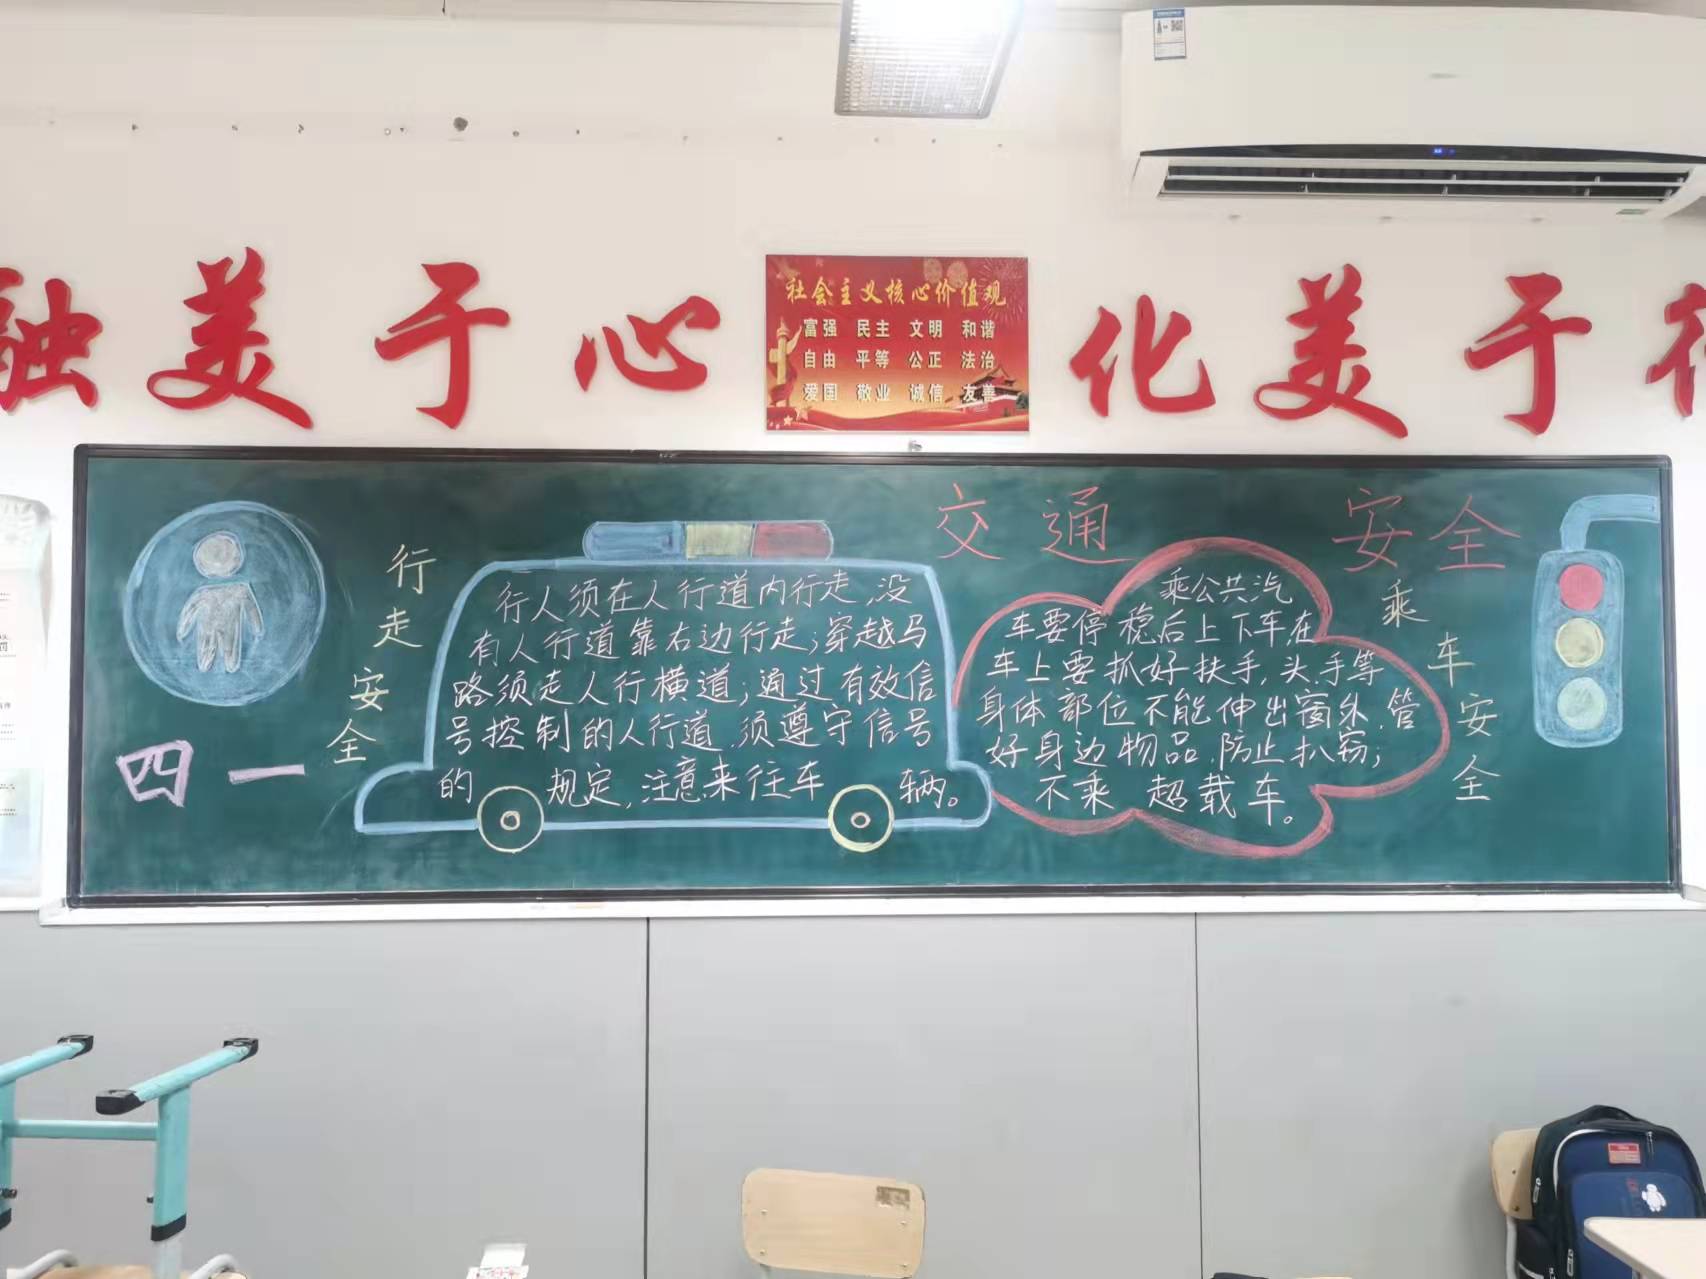 融美于心
化美于行
社会主义核心价值观
富强 民主 文明 和谐
自由 平等 公正 法治
爱国 敬业 诚信 友善
交通 安全
四一
行走安全
行人须在人行道内行走,没
有人行道靠右边行走;穿越马
路须走人行横道;通过有效信
号控制的人行道,须遵守信号
的 规定,注意来往车 辆。
乘公共汽
车要停稳后上下车,在
车上要抓好扶手,头、手等
身体部位不能伸出窗外,管
好身边物品,防止扒窃;
不乘超载车。
乘车安全